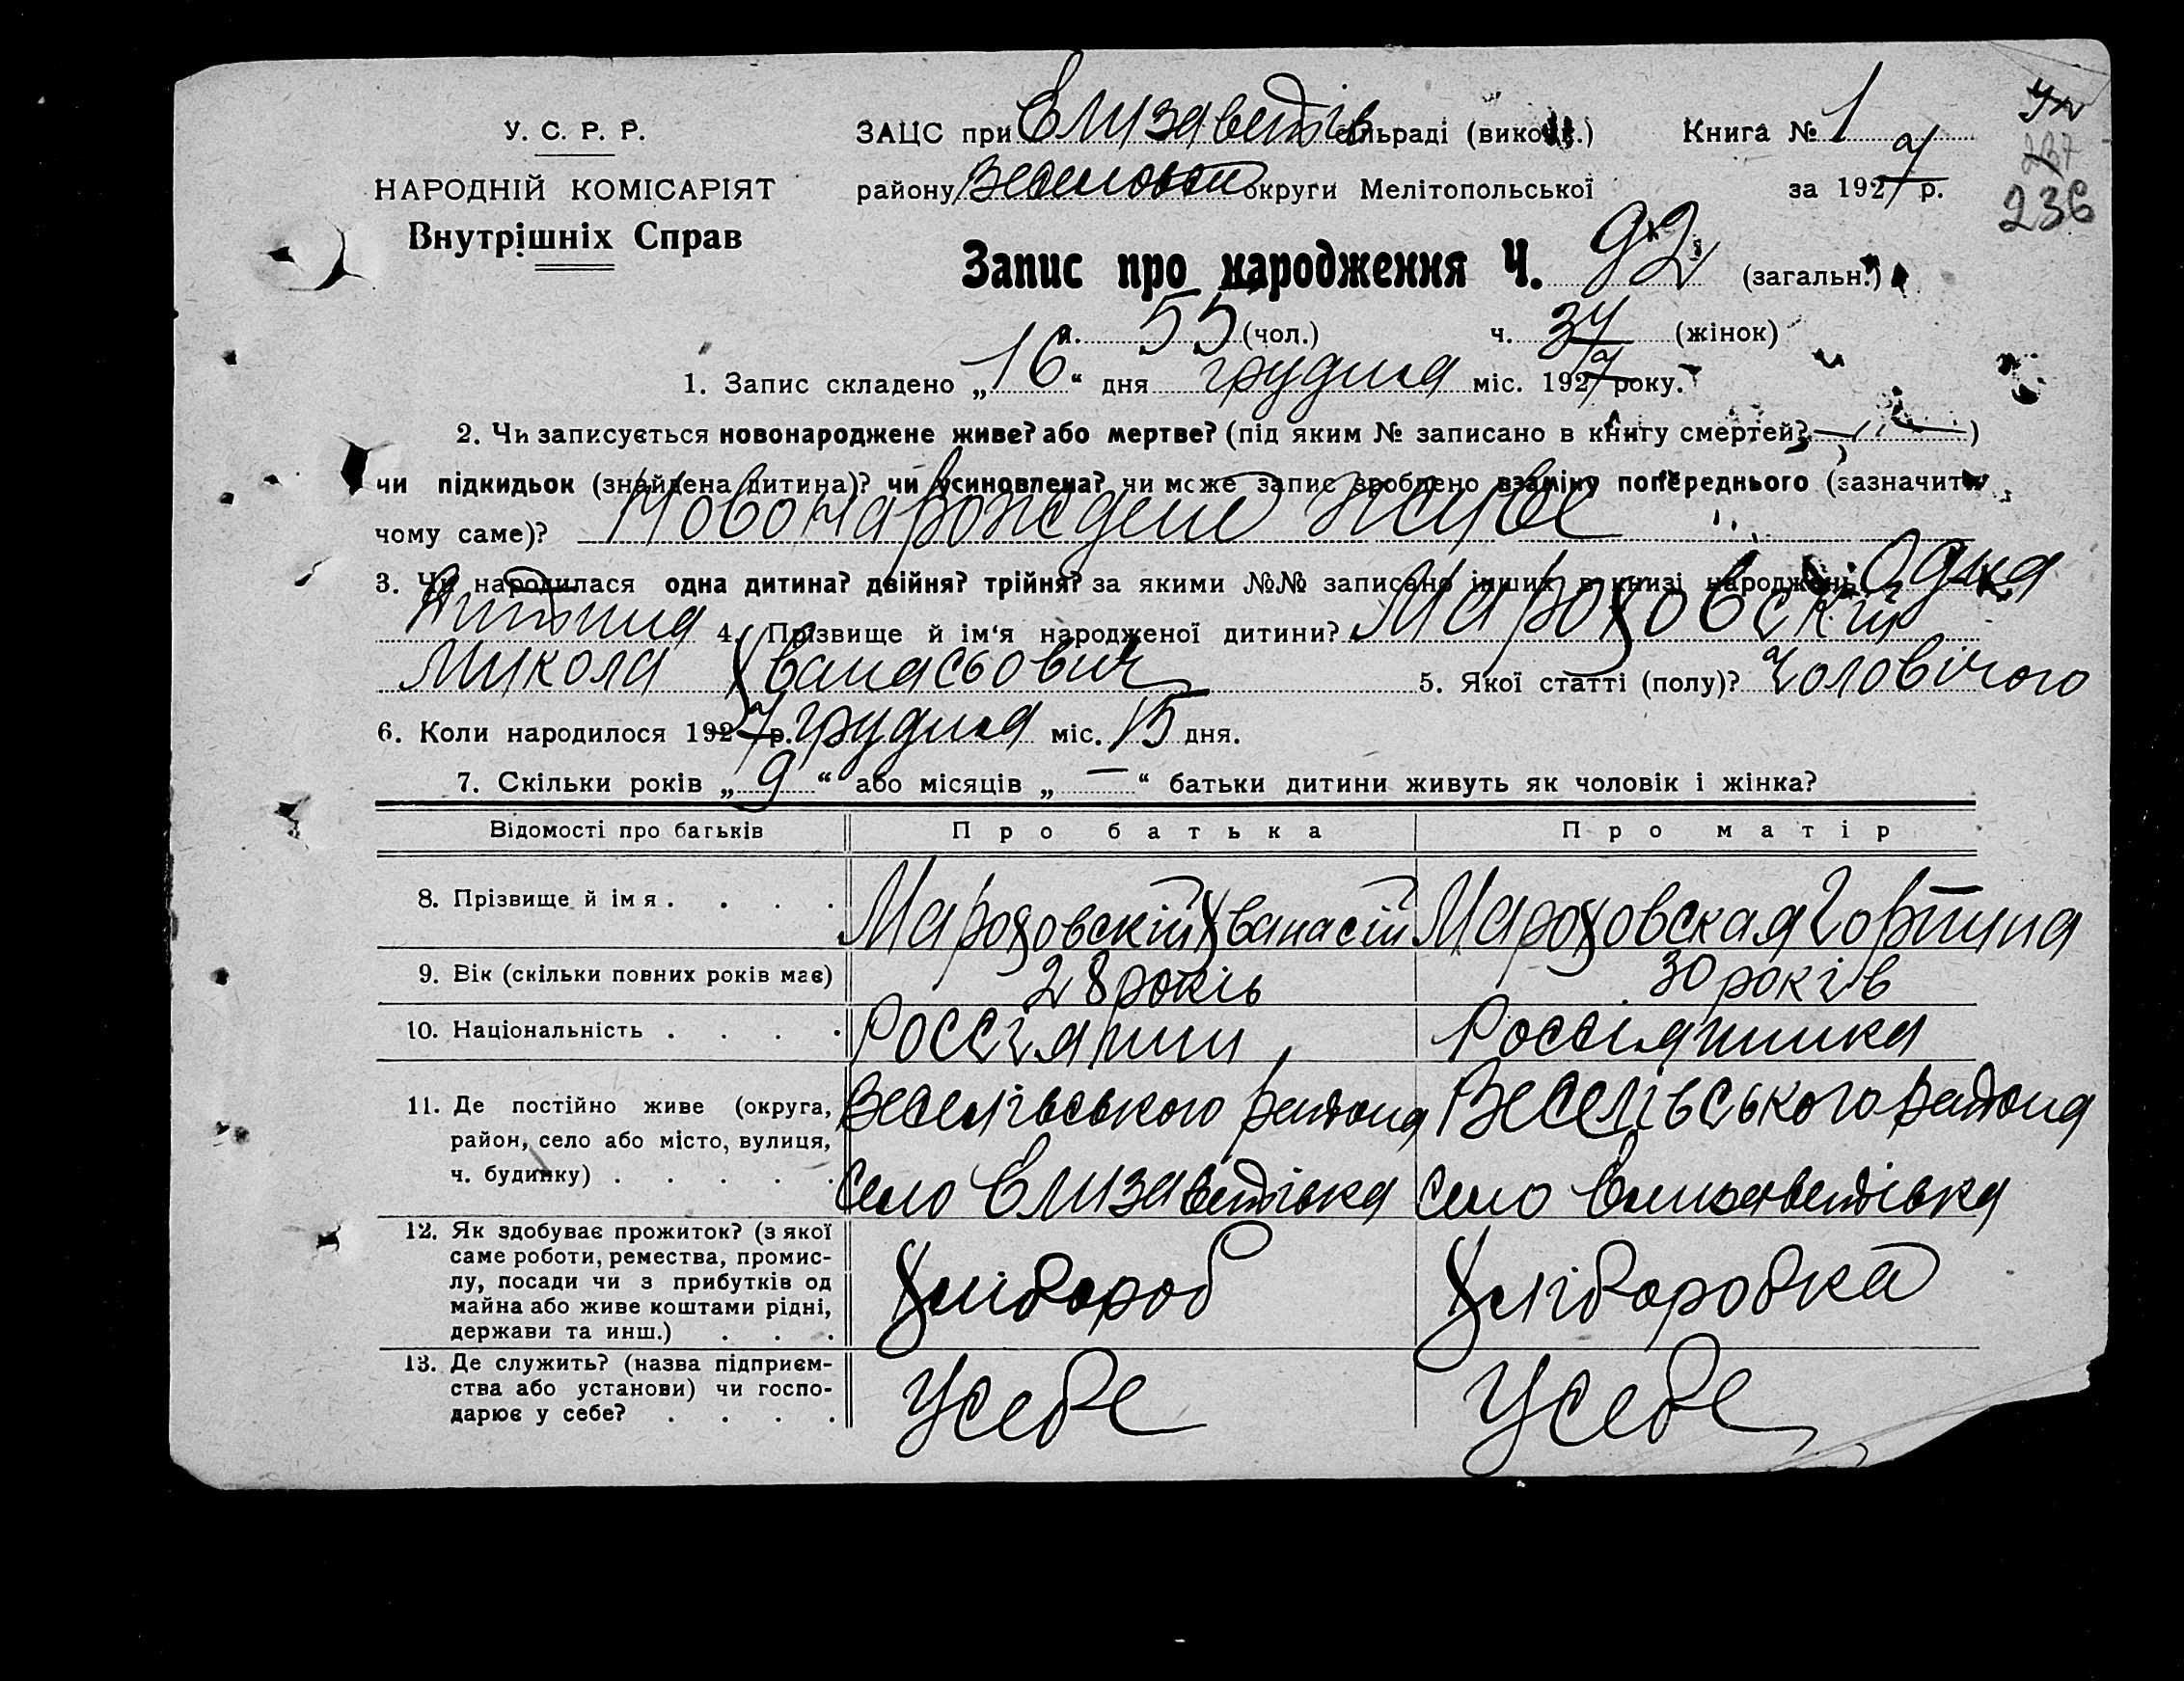 У. С. Р. Р.
НАРОДНІЙ КОМІСАРІЯТ
Внутрішніх Справ
ЗАЦС при Елизаветів сільраді (викон.) Книга № 1
району округи Мелітопольської за 1927 р.
237
236
Запис про народження Ч. 92 (загальн.)
ч. 55 (чол.) ч. 37 (жінок)
1. Запис складено „16“ дня грудня міс. 1927 року.
2. Чи записується новонароджене живе? або мертве? (під яким № записано в книгу смертей? — )
чи підкидьок (знайдена дитина)? чи усиновлена? чи може запис зроблено взаміну попереднього (зазначити
чому саме)? Новонарождене живе
3. Чи народилася одна дитина? двійня? трійня? за якими №№ записано інших в книзі народжень Одна
дитина 4. Прізвище й ім‘я народженої дитини? Мароховский
Микола Хванасьович 5. Якої статті (полу)? Чоловічого
6. Коли народилося 1927 р. грудня міс. 15 дня.
7. Скільки років „9“ або місяців „—“ батьки дитини живуть як чоловік і жінка?
Відомості про батьків Про батька Про матір
8. Прізвище й ім я . . . . Мароховскій Хванасій Мароховская Горпина
9. Вік (скільки повних років має) 28 років 30 років
10. Національність . . . . Россіянин Россіянинка
11. Де постійно живе (округа, Веселівського района Веселівського района
район, село або місто, вулиця,
ч. будинку) . . . . . Село Елизаветівка Село Елизаветівка
12. Як здобуває прожиток? (з якої
саме роботи, ремества, промис-
лу, посади чи з прибутків од Хлібороб Хліборобка
майна або живе коштами рідні,
держави та инш.) . . .
13. Де служить? (назва підприєм-
ства або установи) чи госпо- У себе У себе
дарює у себе? . . . .